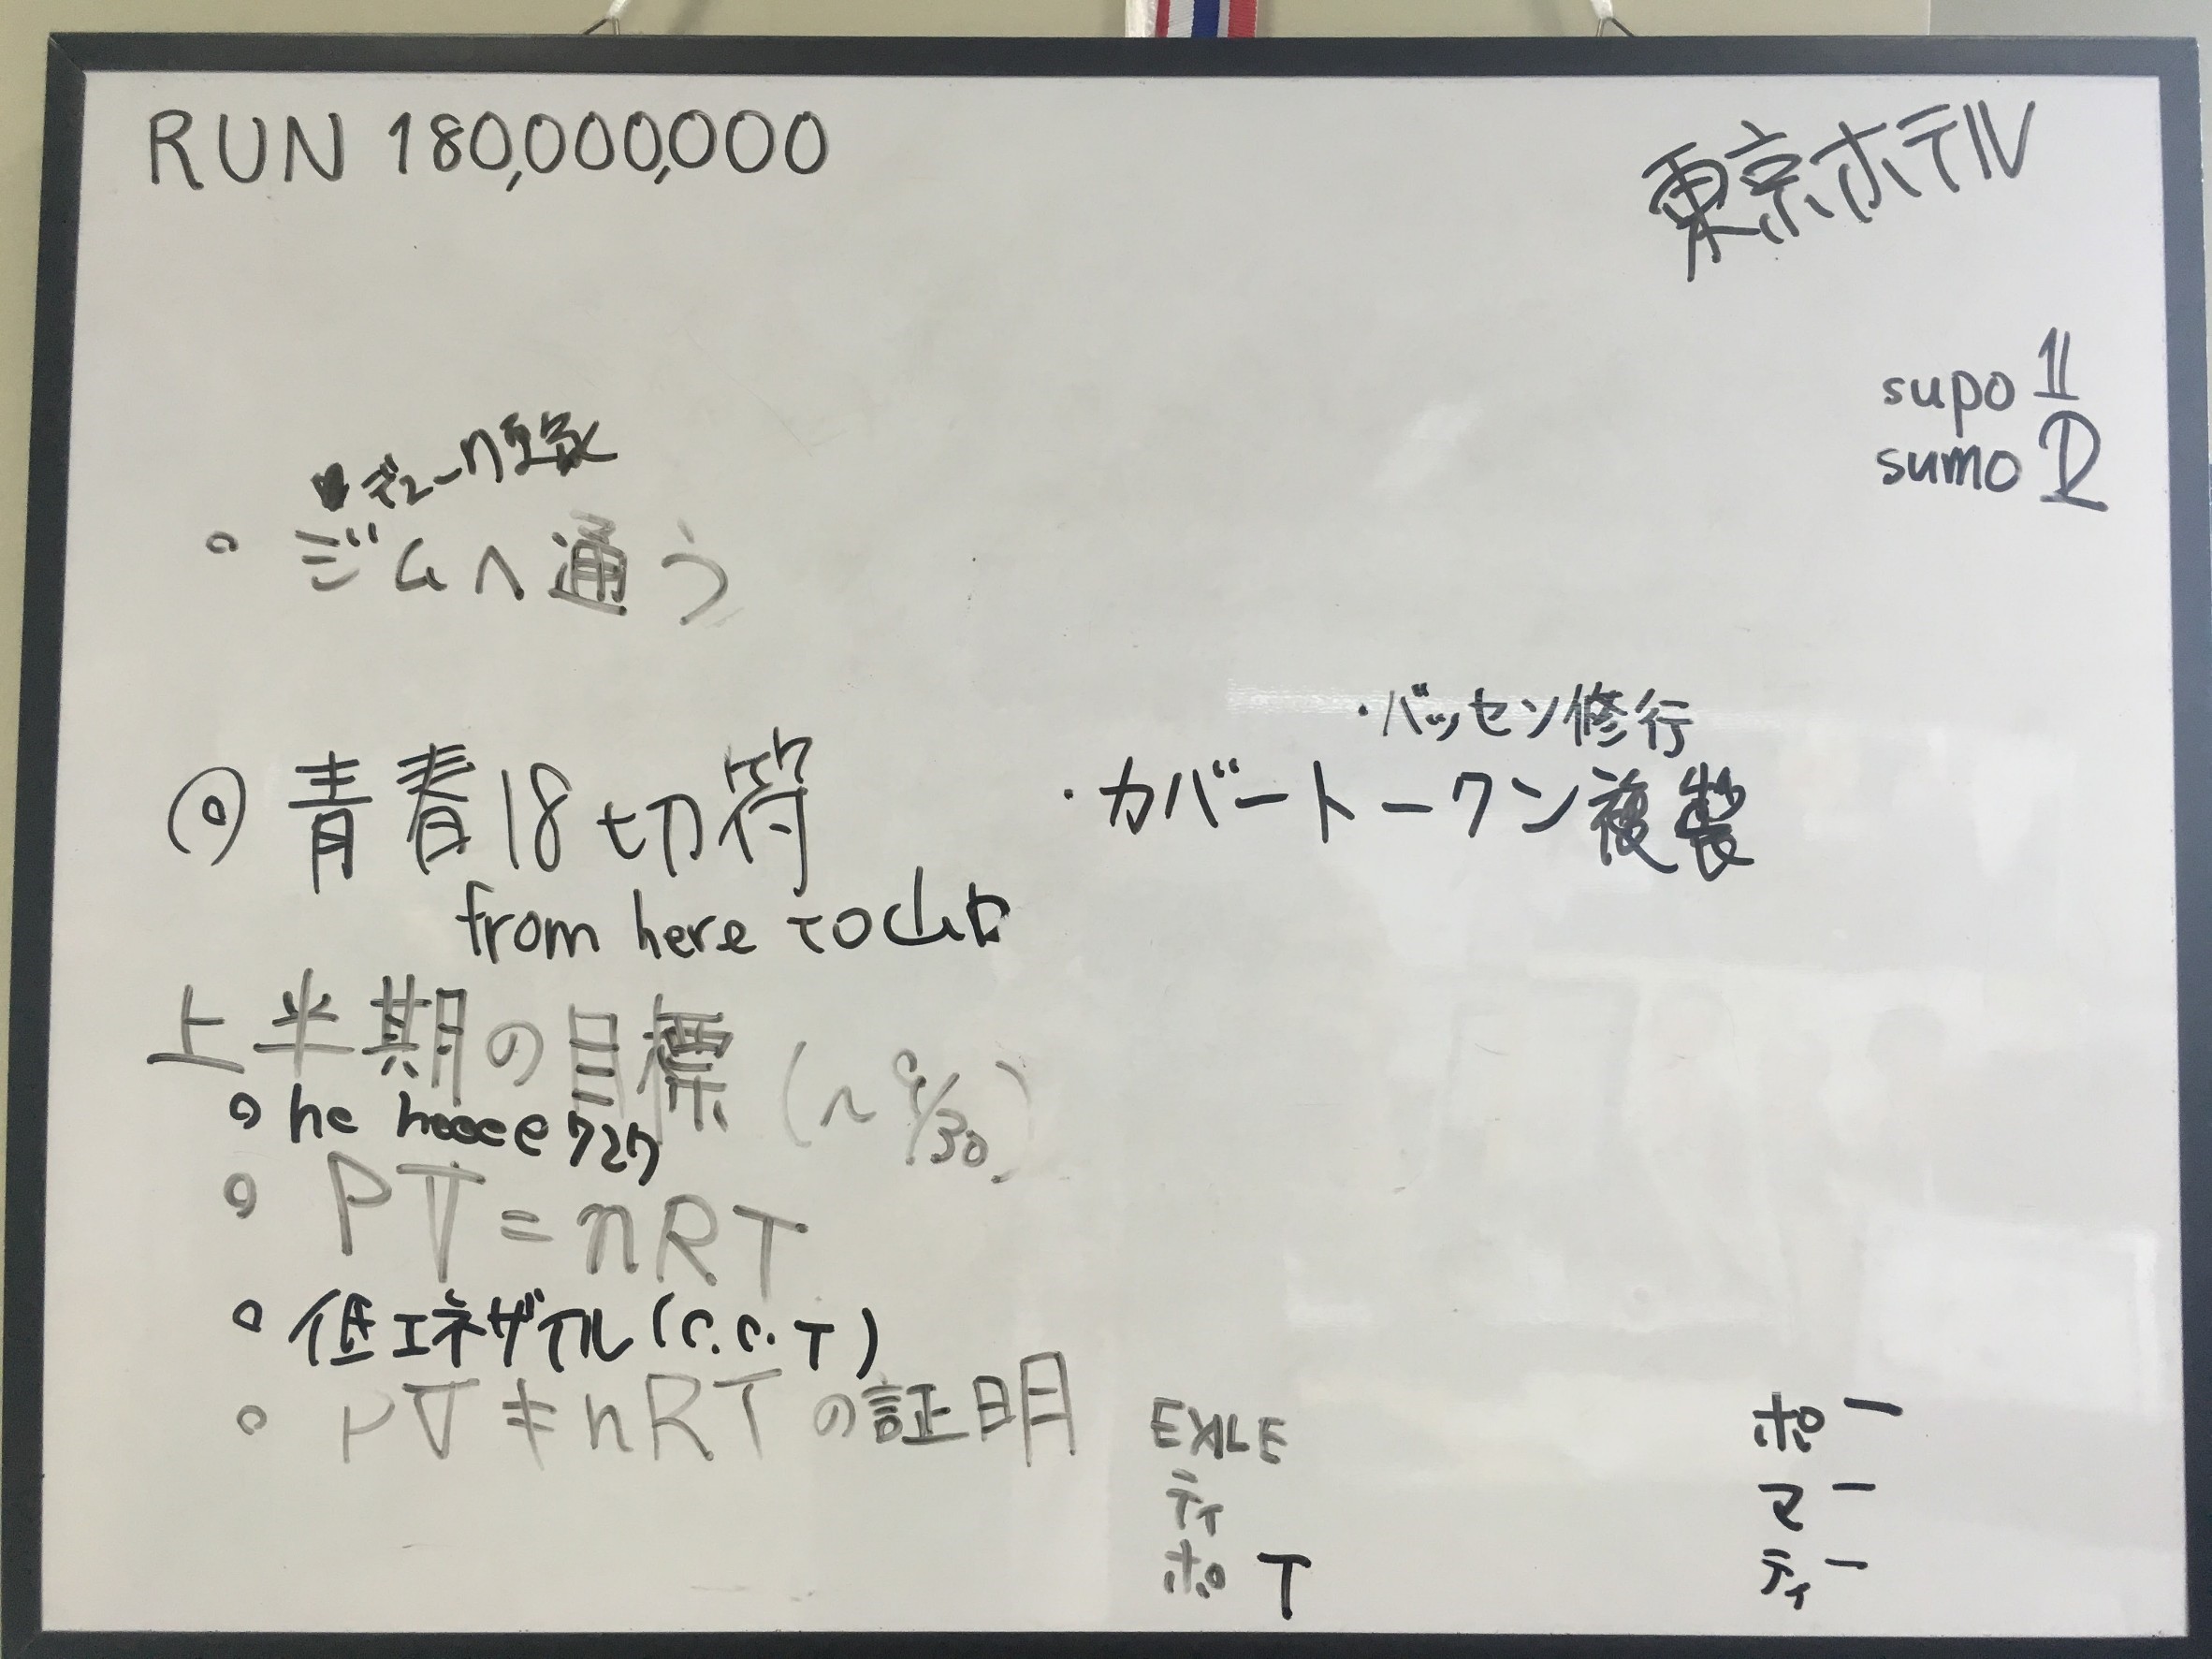 RUN 180,000,000
東京ホテル
supo 1
sumo 2
デューク更家
ジムへ通う
・バッセン修行
青春18切符
・カバートークン複製
from here to 山口
上半期の目標 (~9/30)
he 727
PV=nRT
低エネザイル (C.C.T)
PV≠nRTの証明
EXILE
ティ
ポ T
ポー
マー
ティー